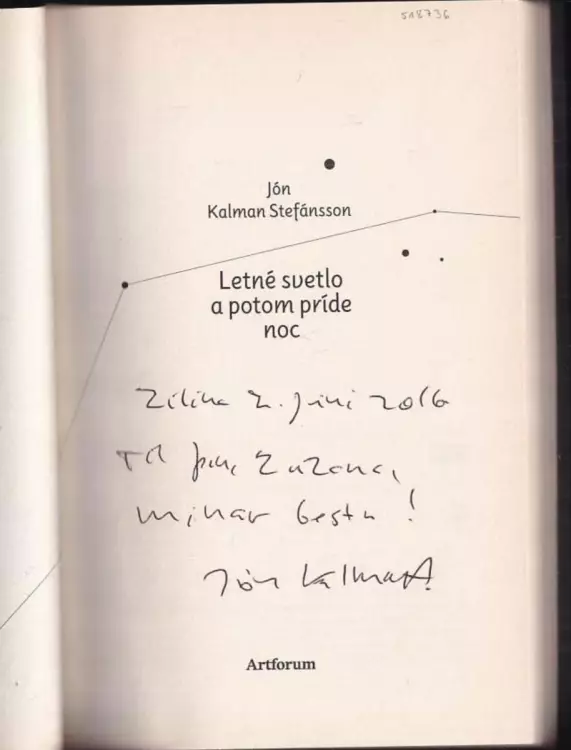 518736
Jón
Kalman Stefánsson
Letné svetlo
a potom príde
noc
Zilina 2. júní 2016
Til Zuzana,
mínar bestu!
Jón Kalman
Artforum